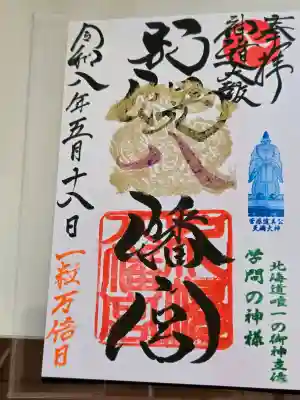 奉拝
菅原道真公
天満大神
北海道唯一の御神立像
学問の神様
八幡宮
令和八年五月十八日
一粒万倍日